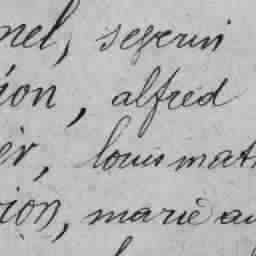 nel, severin
ion, alfred
er, louis mat
ion, marie au